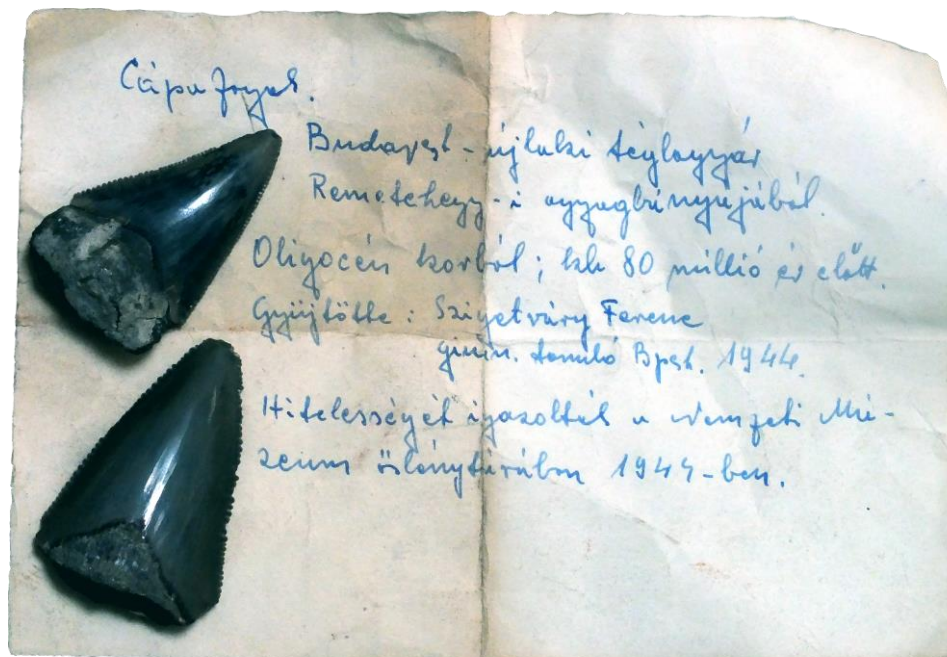 Cápa fogak.
Budapest - újlaki téglagyár
Remetehegy-i agyagbányájából.
Oligocén korból; kb 80 millió év előtt.
Gyüjtötte: Szigetváry Ferenc
gimn. tanuló Bpest. 1944.
Hitelességét igazolták a Nemzeti Mú-
zeum őslénytárában 1944-ben.